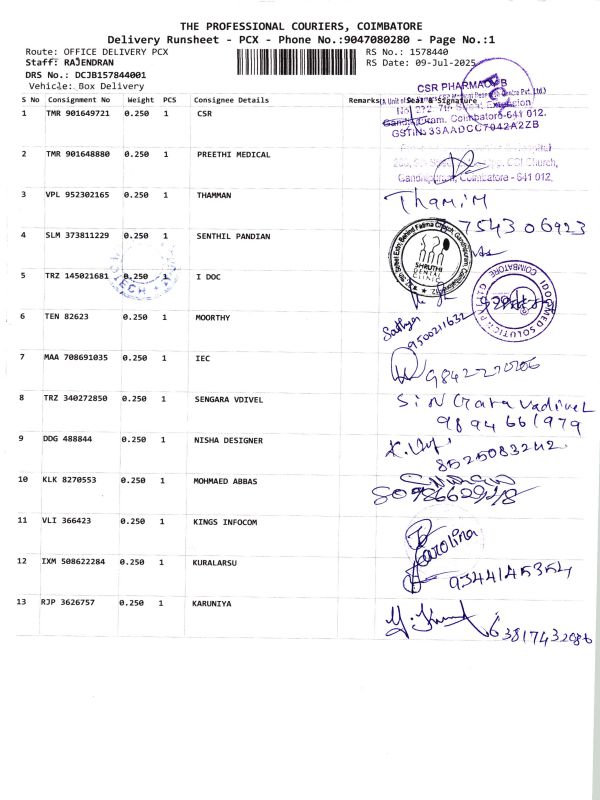 THE PROFESSIONAL COURIERS, COIMBATORE
Delivery Runsheet - PCX - Phone No.:9047080280 - Page No.:1
Route: OFFICE DELIVERY PCX
RS No.: 1578440
Staff: RAJENDRAN
RS Date: 09-Jul-2025
DRS No.: DCJB157844001
Vehicle: Box Delivery
S No Consignment No Weight PCS Consignee Details Remarks Seal & Signature
1 TMR 901649721 0.250 1 CSR
CSR PHARMACY
Coimbatore-641 012.
GSTIN: 33AADCC7042A2ZB
2 TMR 901648880 0.250 1 PREETHI MEDICAL
CSI Church,
Gandhipuram, Coimbatore - 641 012.
3 VPL 952302165 0.250 1 THAMMAN
Thamim
7543 06923
4 SLM 373811229 0.250 1 SENTHIL PANDIAN
SHRUTHI
DENTAL
CLINIC
5 TRZ 145021681 0.250 1 I DOC
COIMBATORE
6 TEN 82623 0.250 1 MOORTHY
Sathya
9500211632
7 MAA 708691035 0.250 1 IEC
8 TRZ 340272850 0.250 1 SENGARA VDIVEL
9894661979
9 DDG 488844 0.250 1 NISHA DESIGNER
8525083242
10 KLK 8270553 0.250 1 MOHMAED ABBAS
11 VLI 366423 0.250 1 KINGS INFOCOM
Karolina
12 IXM 508622284 0.250 1 KURALARSU
9344145354
13 RJP 3626757 0.250 1 KARUNIYA
63817432086